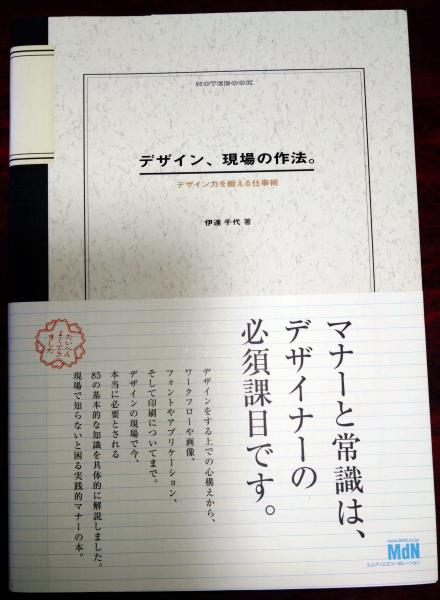 NOTEBOOK
デザイン、現場の作法。
デザイン力を鍛える仕事術
伊達 千代 著
マナーと常識は、
デザイナーの
必須課目です。
デザインをする上での心構えから、
ワークフローや画像、
フォントやアプリケーション、
そして印刷についてまで。
デザインの現場で今、
本当に必要とされる
85の基本的な知識を具体的に解説しました。
現場で知らないと困る実践的マナーの本。
たいへん
よくでき
ました
www.MdN.co.jp
MdN
エムディエヌコーポレーション